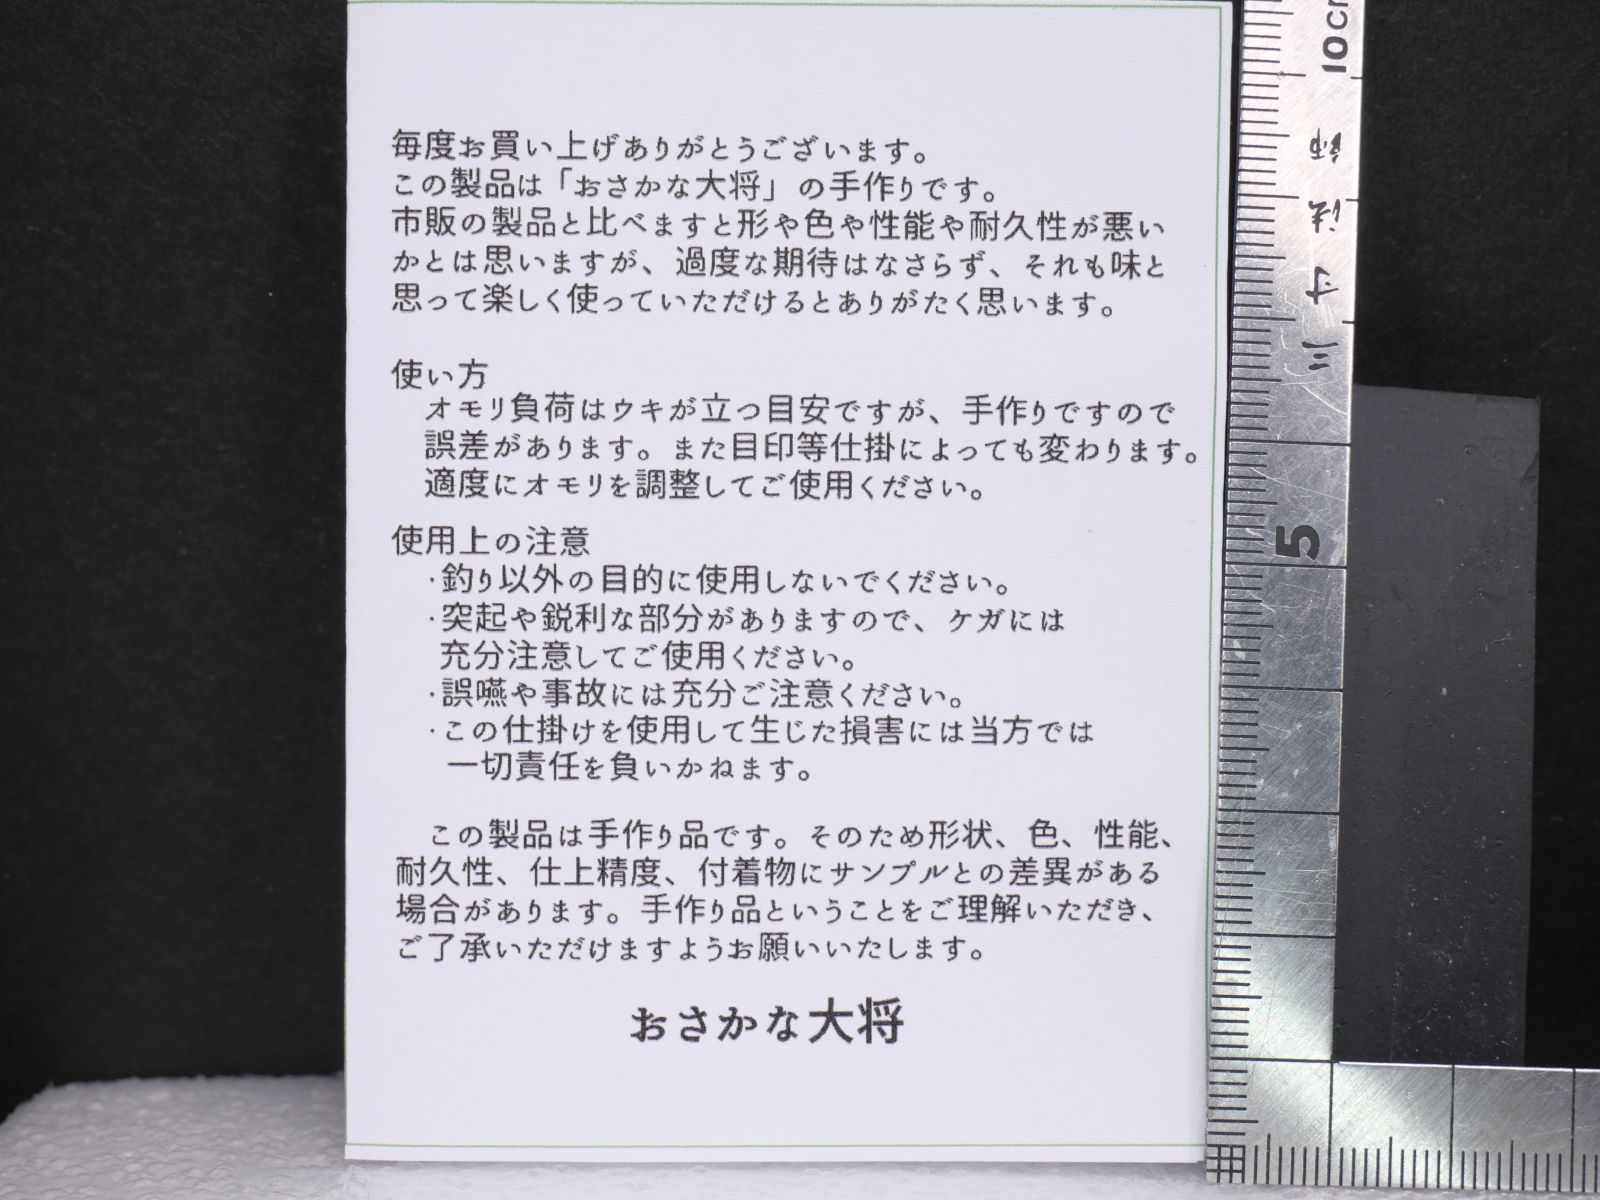 毎度お買い上げありがとうございます。
この製品は「おさかな大将」の手作りです。
市販の製品と比べますと形や色や性能や耐久性が悪い
かとは思いますが、過度な期待はなさらず、それも味と
思って楽しく使っていただけるとありがたく思います。
使い方
オモリ負荷はウキが立つ目安ですが、手作りですので
誤差があります。また目印等仕掛によっても変わります。
適度にオモリを調整してご使用ください。
使用上の注意
・釣り以外の目的に使用しないでください。
・突起や鋭利な部分がありますので、ケガには
充分注意してご使用ください。
・誤嚥や事故には充分ご注意ください。
・この仕掛けを使用して生じた損害には当方では
一切責任を負いかねます。
この製品は手作り品です。そのため形状、色、性能、
耐久性、仕上精度、付着物にサンプルとの差異がある
場合があります。手作り品ということをご理解いただき、
ご了承いただけますようお願いいたします。
おさかな大将
10cm
5
三寸法師